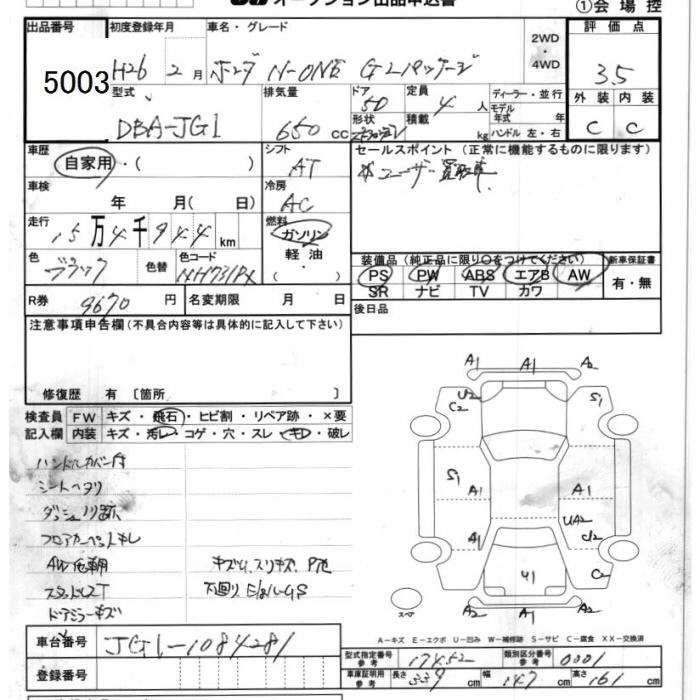 オークション出品申込書
①会場控
出品番号 初度登録年月 車名・グレード 2WD・4WD 評価点
5003 H26 2月 ホンダ N-ONE GLパッケージ 3.5
型式 排気量 ドア 定員 ディーラー・並行 外装 内装
DBA-JG1 650cc 5D 4人 モデル年式 年 C C
形状 積載 kg ハンドル 左・右
車歴 シフト セールスポイント (正常に機能するものに限ります)
自家用・( ) AT ※ユーザー買取車
車検 年 月( 日) 冷房 AC
走行 燃料
15万4千944km ガソリン・軽油・( )
色 色替 色コード 装備品 (純正品に限り○をつけてください) 新車保証書
ブラック NH731PX PS PW ABS エアB AW 有・無
SR ナビ TV カワ
R券 9670円 名変期限 月 日 後日品
注意事項申告欄(不具合内容等は具体的に記入して下さい)
修復歴 有〔箇所 〕
検査員記入欄 FW キズ・飛石・ヒビ割・リペア跡・×要
内装 キズ・汚レ・コゲ・穴・スレ・キレ・破レ
ハンドルカバー付
シートヘタリ
ダッシュノリ跡
フロアカーペットキレ
AW色剥 キズU.スリキズ.P色
スタッドレスT 下回り
ドアミラーキズ
A1 A1 A2
U2 C2 S1
S1 A1 A1
A1 UA2
U1 C2
A2 A1 A2
スペア
A-キズ E-エクボ U-凹み W-補修跡 S-サビ C-腐食 XX-交換済
車台番号 JG1-1084281
型式指定番号 参考 17452 類別区分番号 参考 0001
登録番号
車庫証明用 参考 長さ 339cm 幅 147cm 高さ 161cm